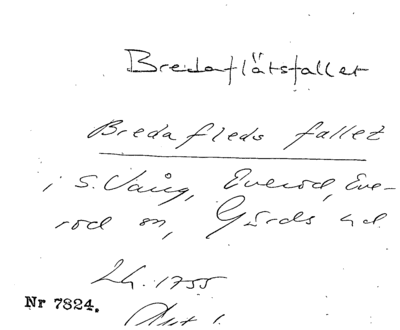 Bredaflätsfallet
Bredafleds fallet
i S. Vång, Everöd, Eve-
röd sn, Gärds hd
Lh. 1755
Nr 7824.
Akt 1.